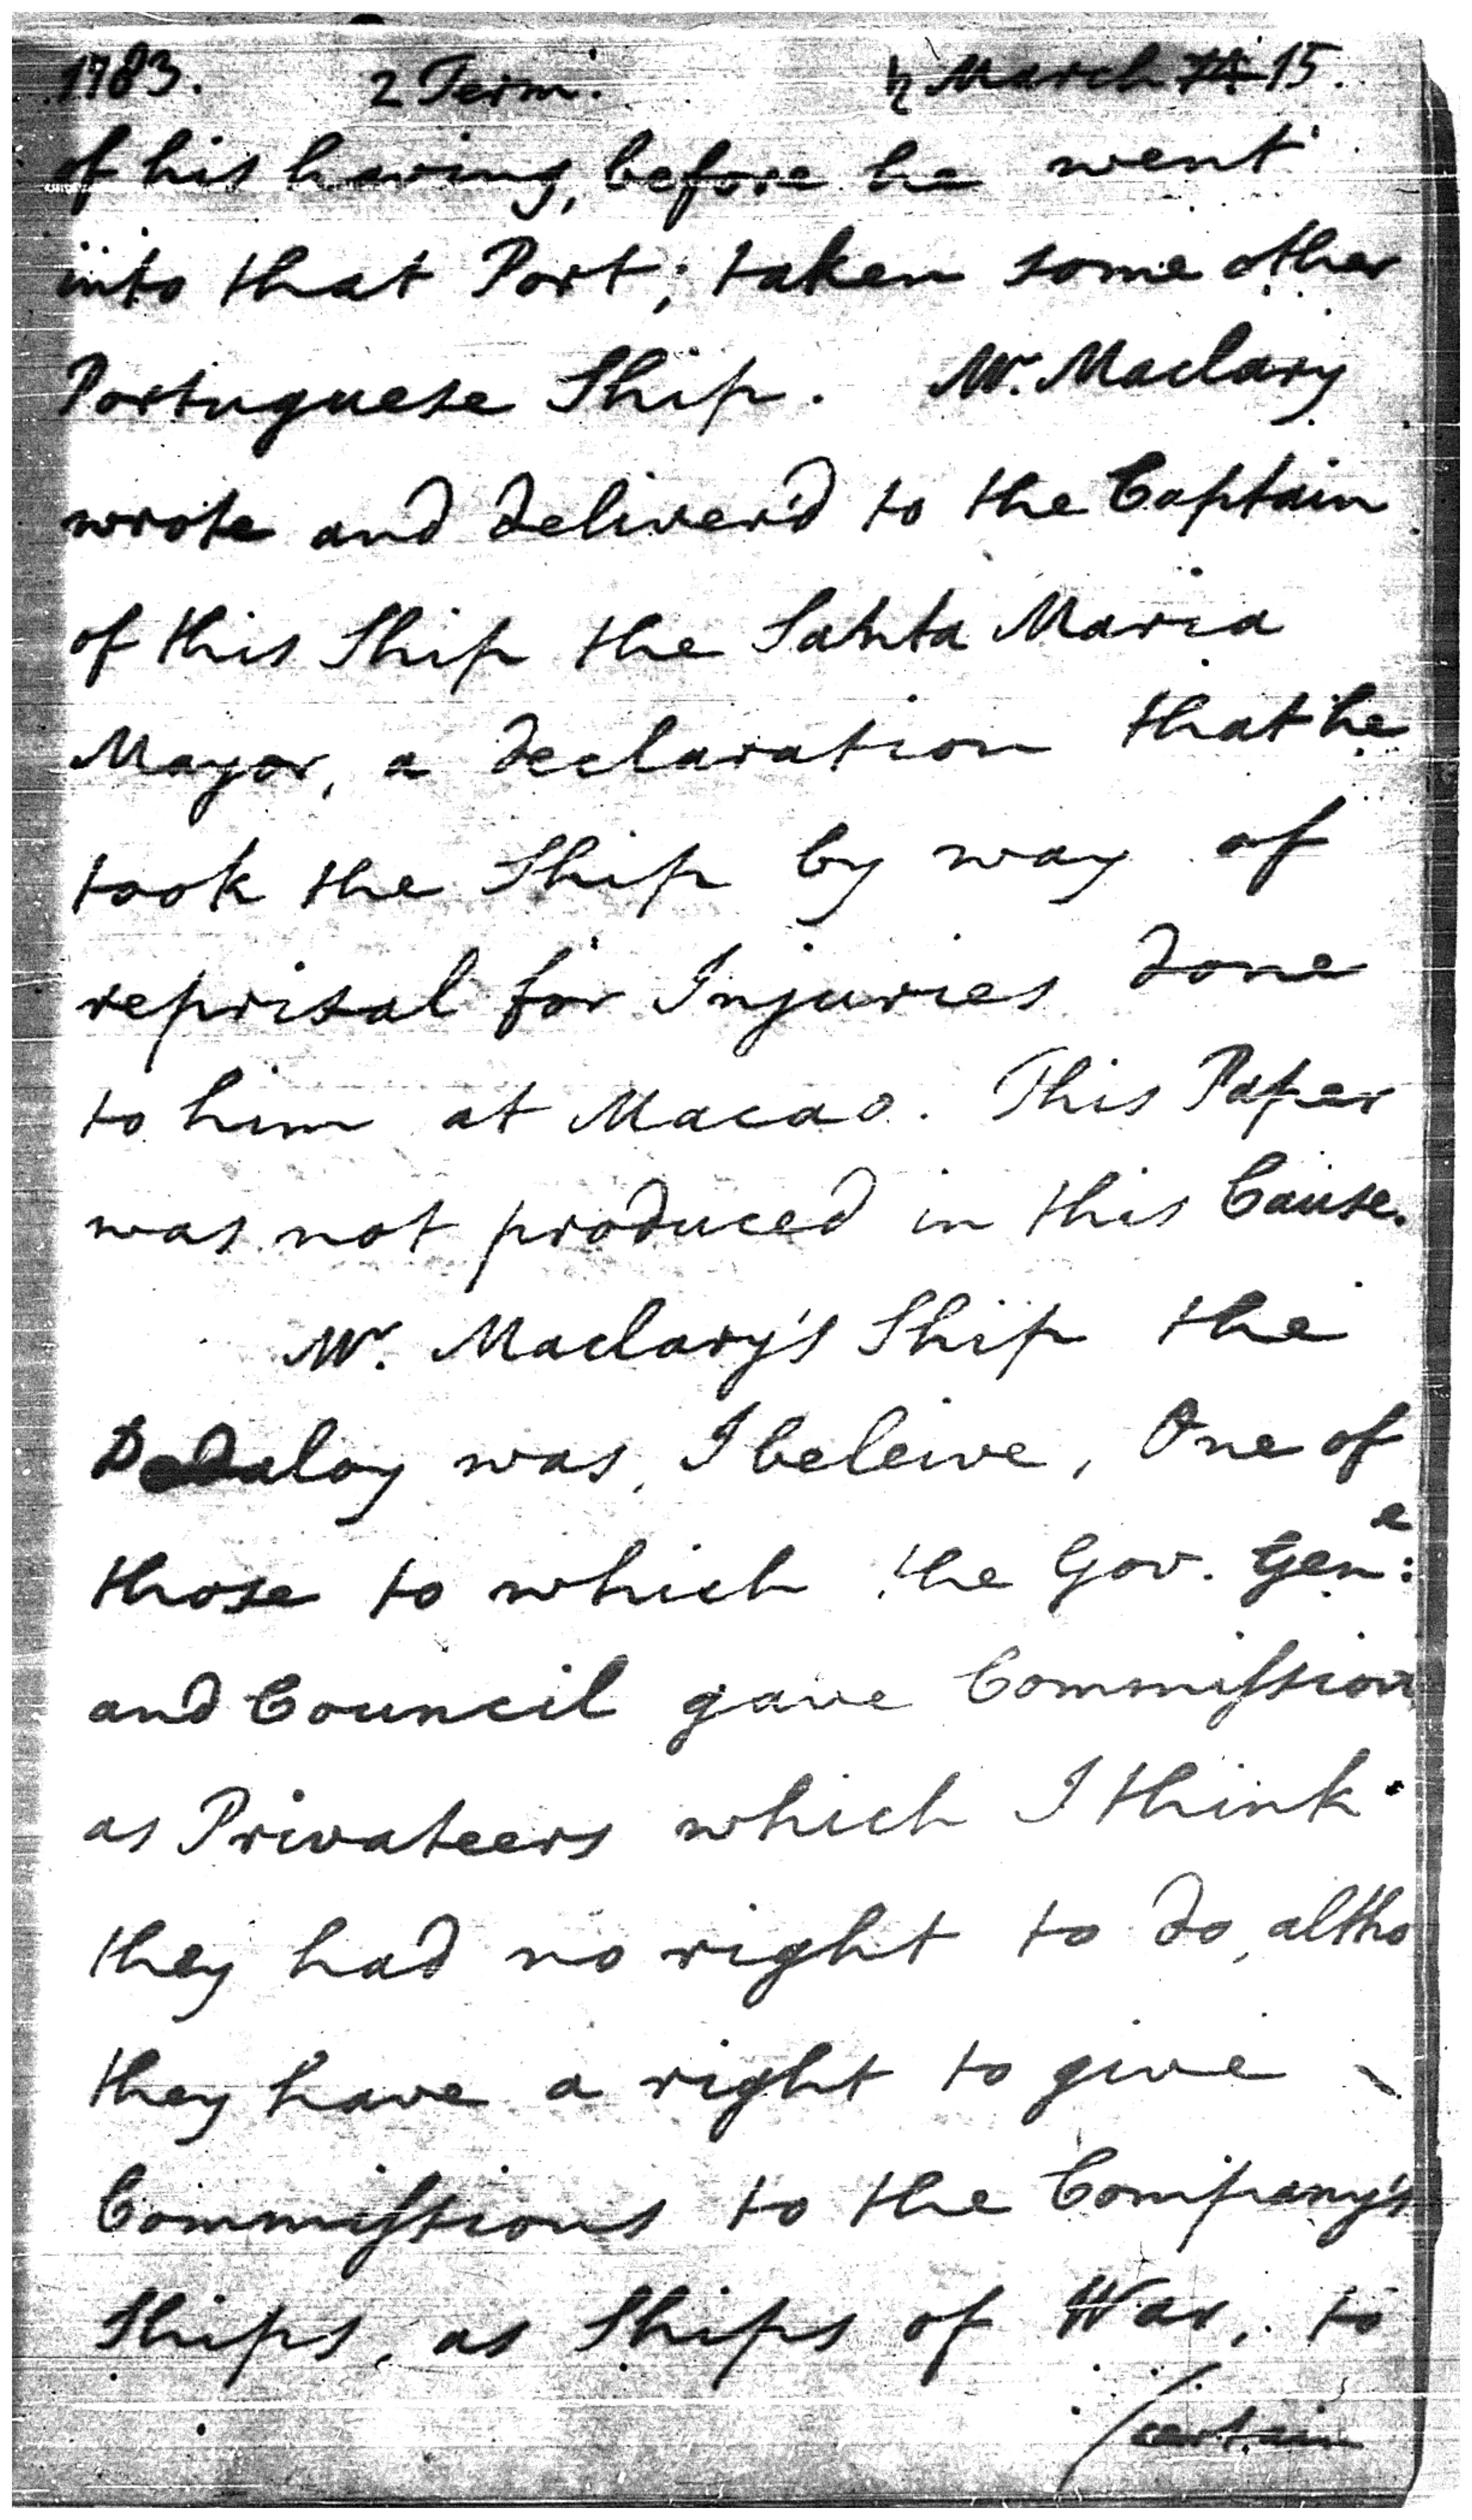 1783. 2 Term. ♄ March 14 15.
of his having, before he went
into that Port, taken some other
Portuguese Ship. Mr. Maclary
wrote and deliver'd to the Captain
of this Ship the Santa Maria
Mayor, a declaration that he
took the Ship by way of
reprisal for Injuries done
to him at Macao. This Paper
was not produced in this Cause.
Mr. Maclary's Ship the
Dadaloy was, I beleive, One of
those to which the Gov. Gene:
and Council gave Commission
as Privateers which I think
they had no right to do, altho
they have a right to give
Commissions to the Company's
Ships, as Ships of War, to
/certain